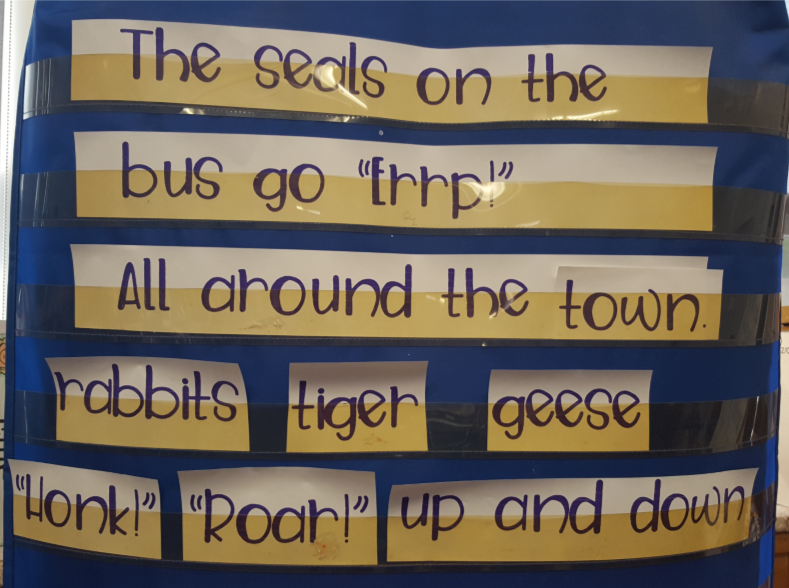 The seals on the
bus go "Errp!"
All around the town.
rabbits tiger geese
"Honk!" "Roar!" up and down